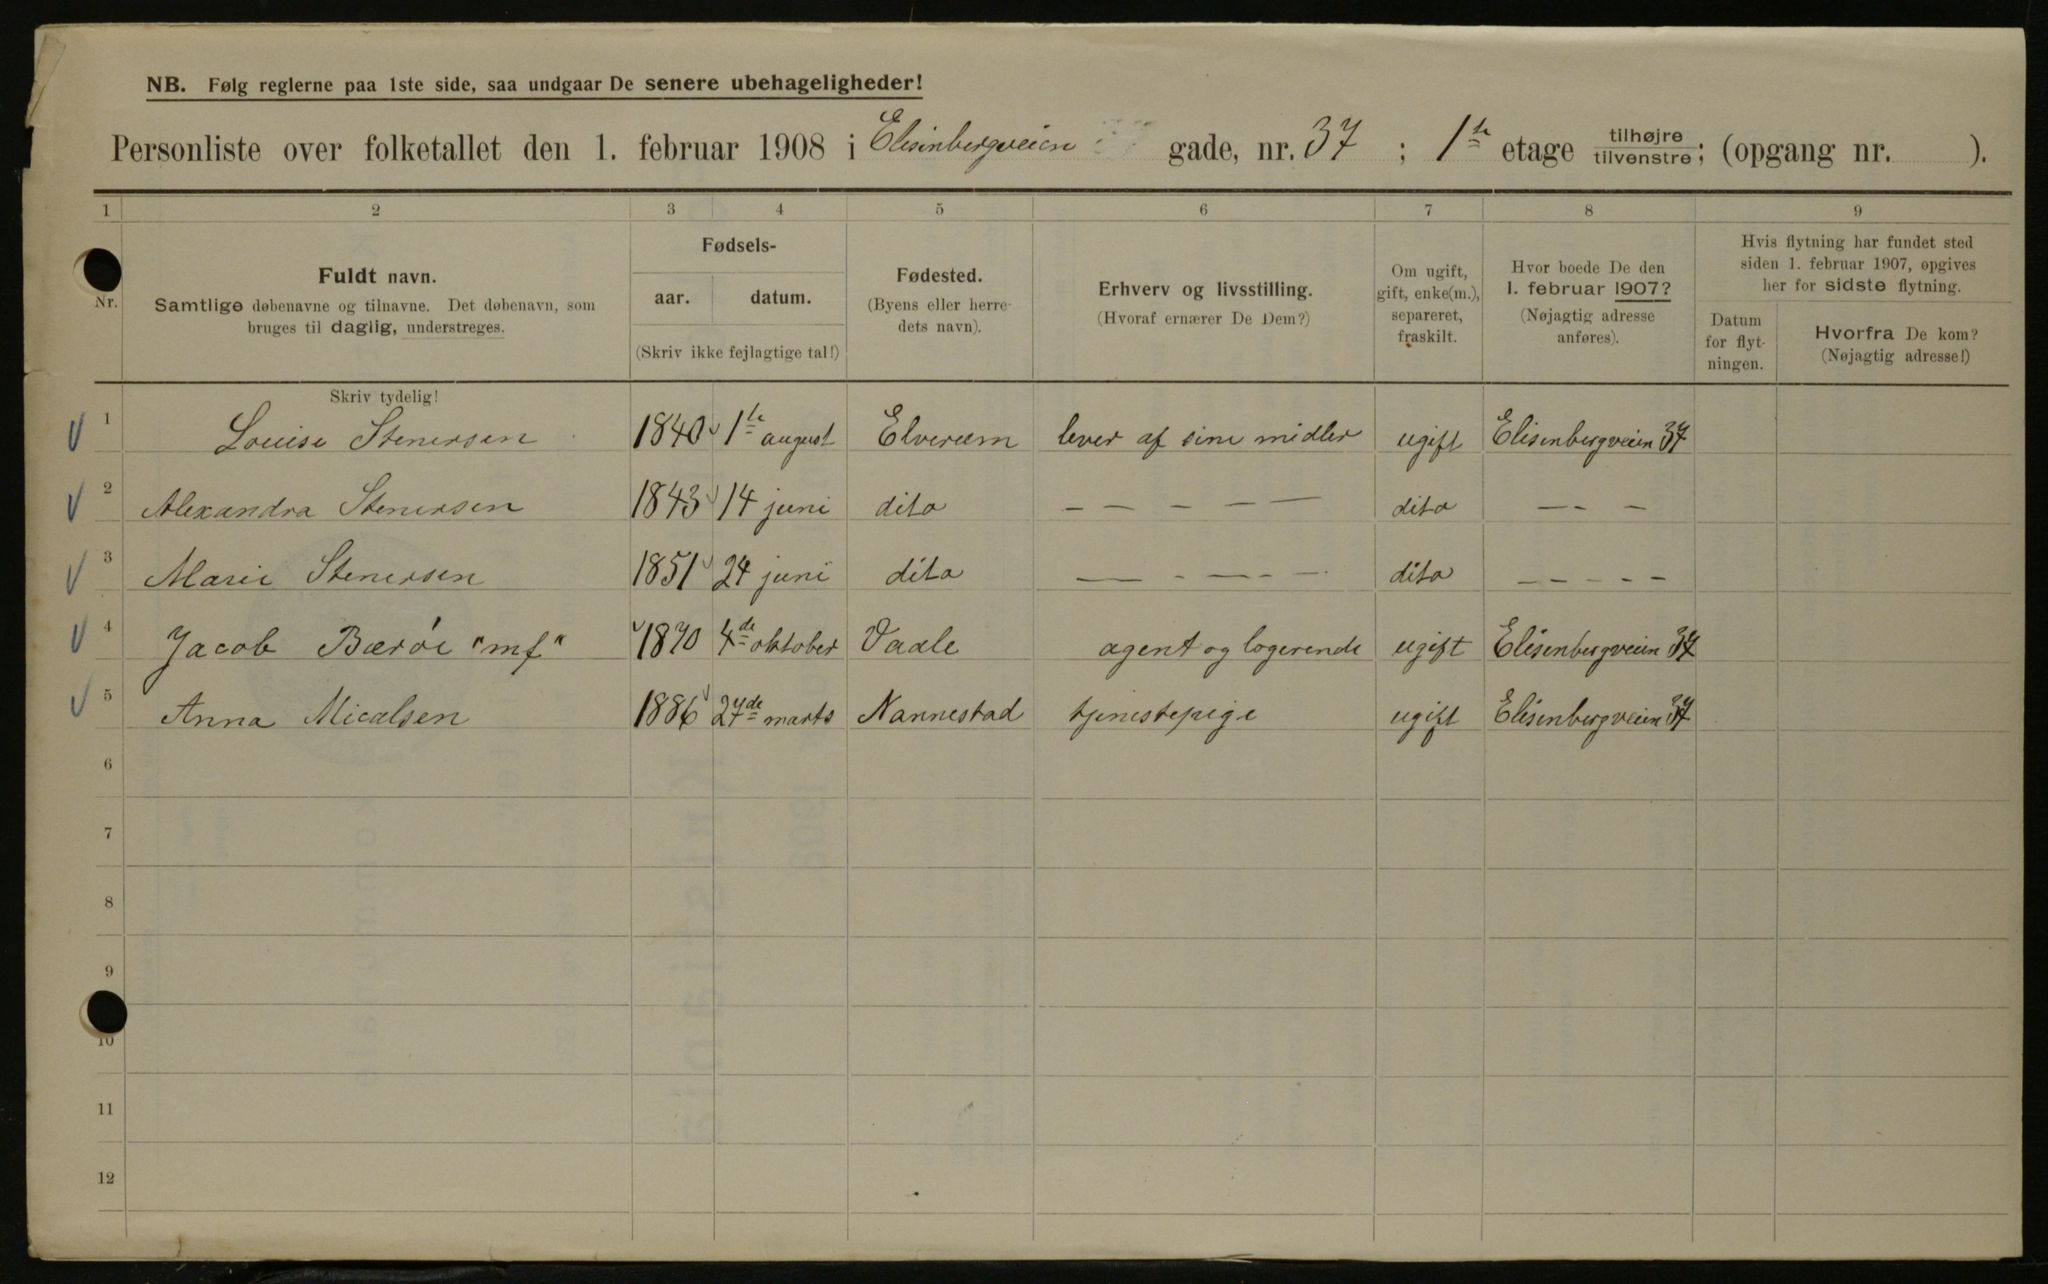 NB. Følg reglerne paa 1ste side, saa undgaar De senere ubehageligheder!
Personliste over folketallet den 1. februar 1908 i Elisenbergveien gade, nr. 37 ; 1ste etage tilhøjre tilvenstre; (opgang nr. ).
1 2 3 4 5 6 7 8 9
Nr.
Fuldt navn.
Samtlige døbenavne og tilnavne. Det døbenavn, som
bruges til daglig, understreges.
Fødsels-
aar. datum.
(Skriv ikke fejlagtige tal!)
Fødested.
(Byens eller herre-
dets navn).
Erhverv og livsstilling.
(Hvoraf ernærer De Dem?)
Om ugift,
gift, enke(m.),
separeret,
fraskilt.
Hvor boede De den
1. februar 1907?
(Nøjagtig adresse
anføres).
Hvis flytning har fundet sted
siden 1. februar 1907, opgives
her for sidste flytning.
Datum
for flyt-
ningen.
Hvorfra De kom?
(Nøjagtig adresse!)
Skriv tydelig!
1 Louise Stenersen 1840 1ste august Elverum lever af sine midler ugift Elisenbergveien 37
2 Alexandra Stenersen 1843 14 juni dito — — — — — dito — - —
3 Marie Stenersen 1851 24 juni dito — — - — — - dito — — - - —
4 Jacob Bærøe "mf" 1870 4de oktober Vaale agent og logerende ugift Elisenbergveien 37
5 Anna Micalsen 1886 27de marts Nannestad tjenestepige ugift Elisenbergveien 37
6
7
8
9
10
11
12